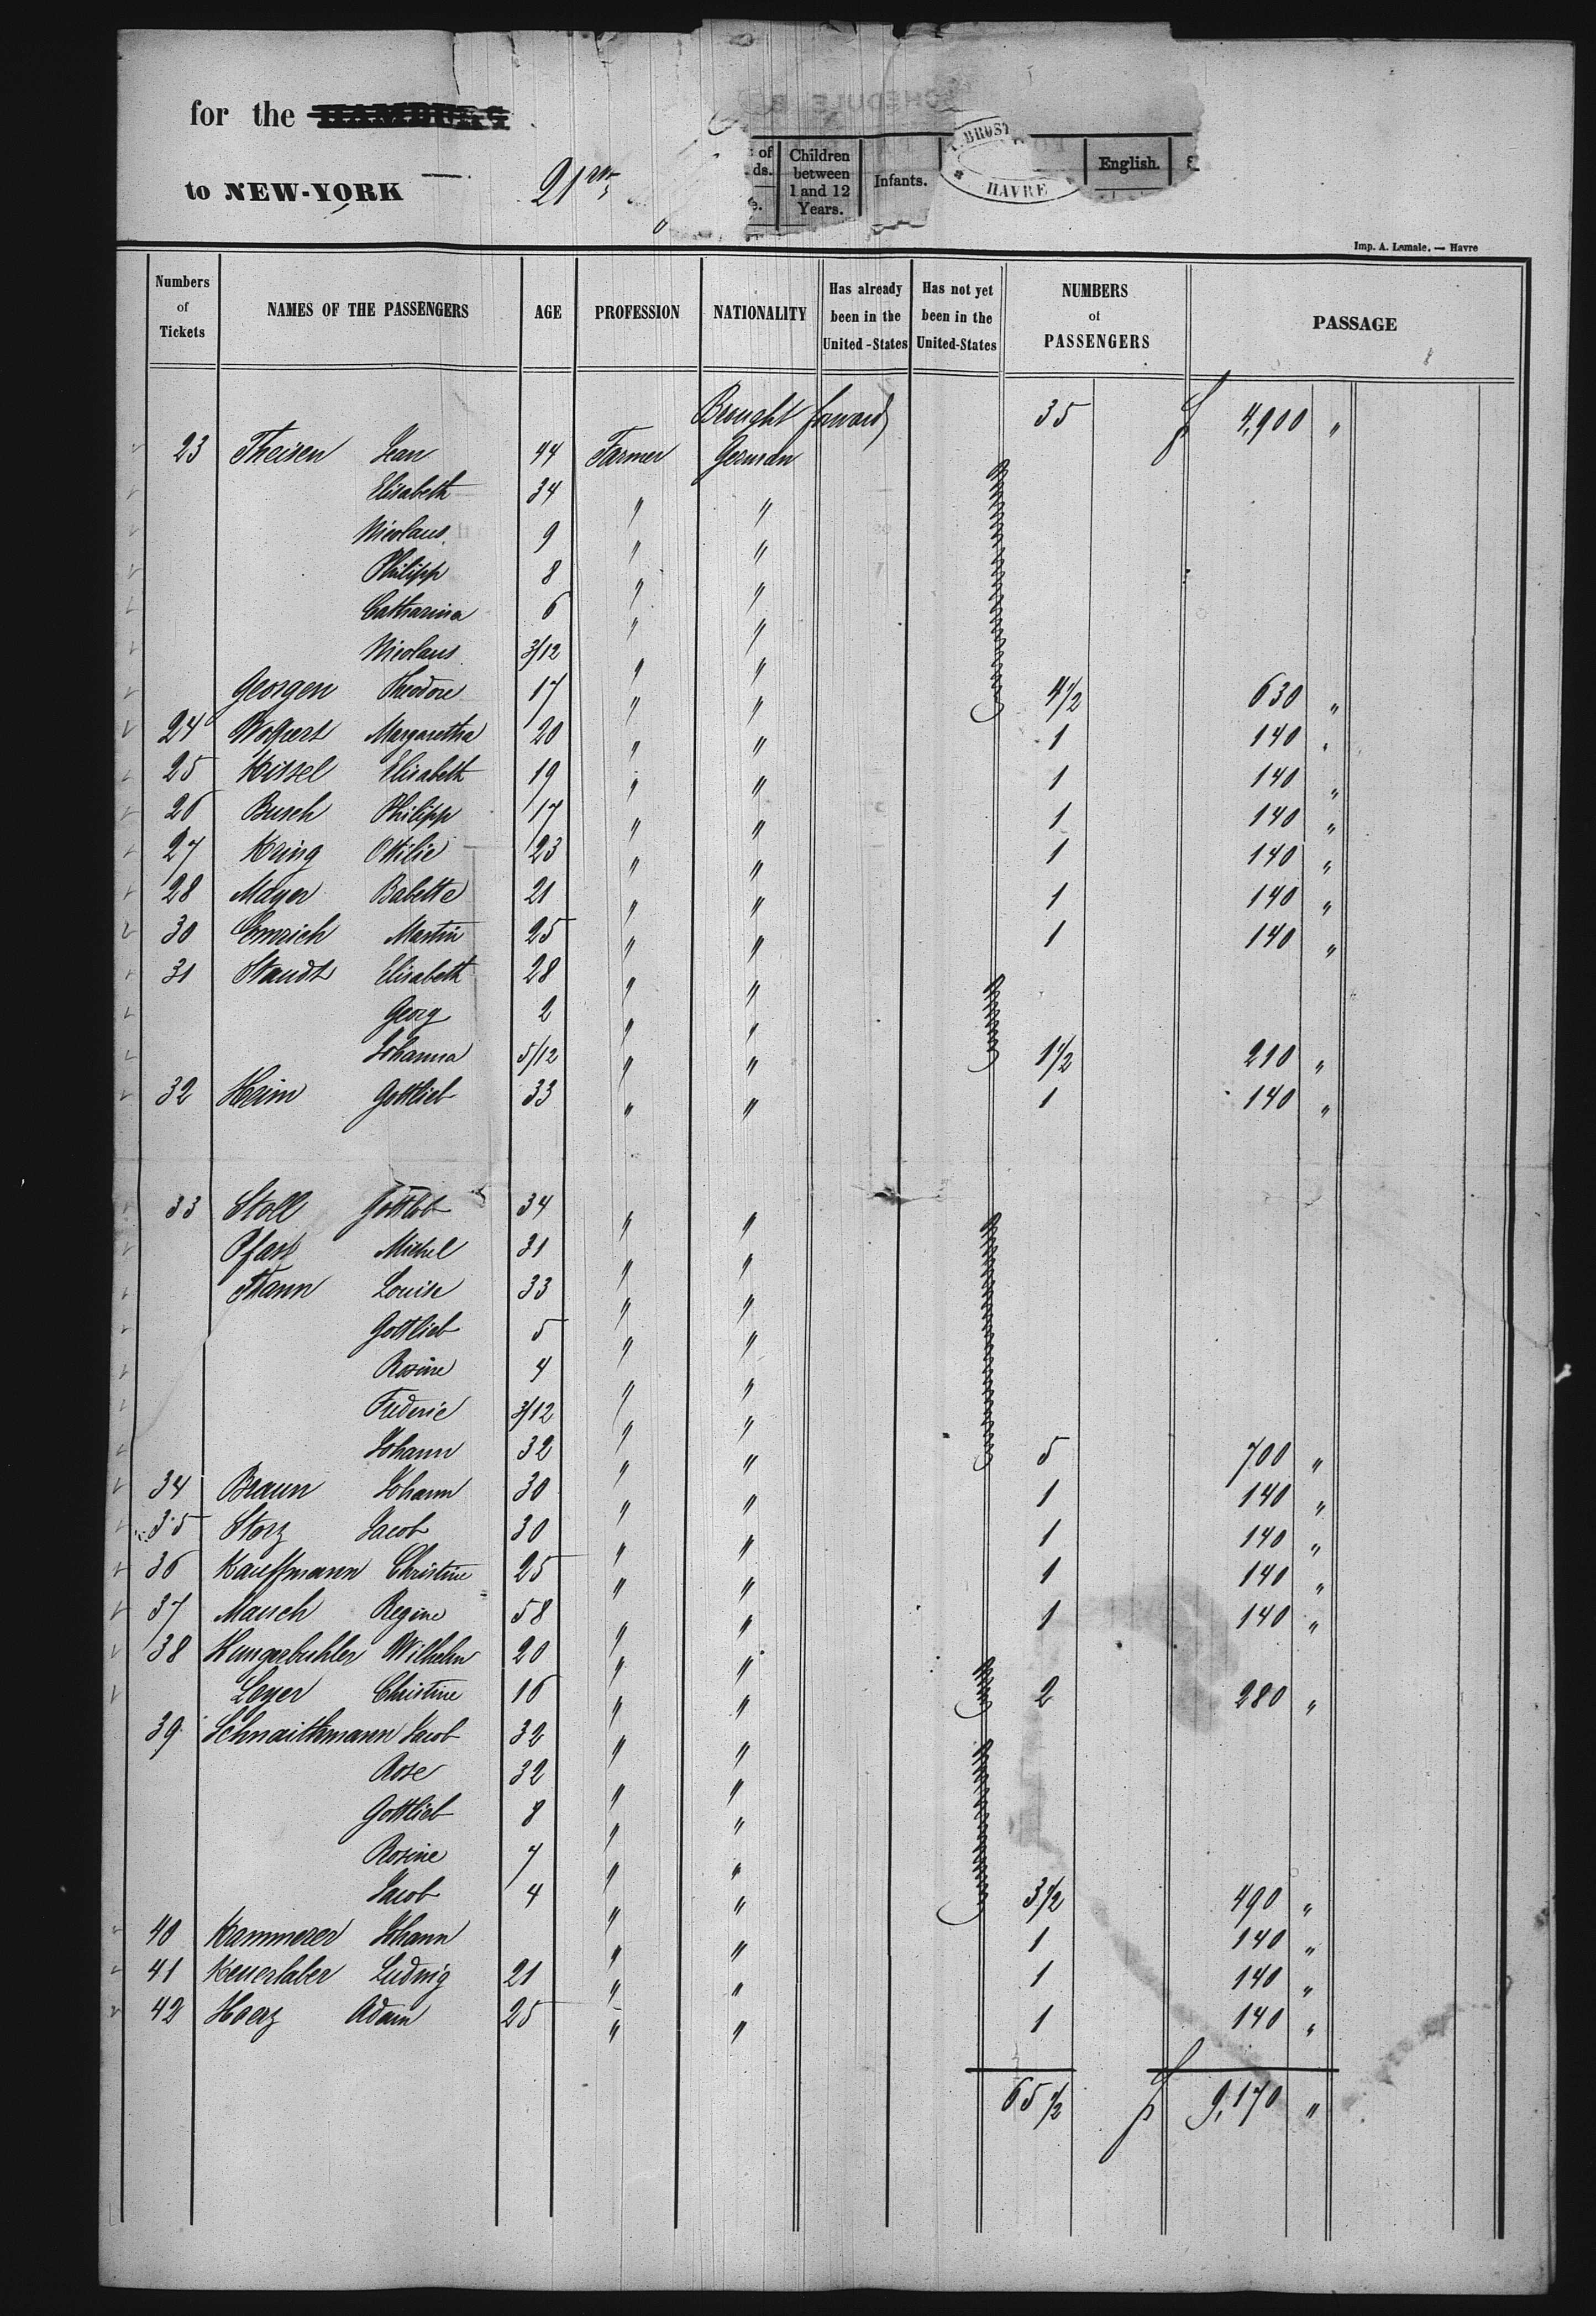 for the HAMBURG
to NEW-YORK
of
ds.
Children between 1 and 12 Years.
Infants.
BROST
HAVRE
English.
Imp. A. Lemale. — Havre
Numbers of Tickets NAMES OF THE PASSENGERS AGE PROFESSION NATIONALITY Has already been in the United-States Has not yet been in the United-States NUMBERS of PASSENGERS PASSAGE
Brought forward 35 f 4,900 "
23 Theisen Jean 44 Farmer German
Elisabeth 34 " "
Nicolaus 9 " "
Philipp 8 " "
Catharina 6 " "
Nicolaus 3/12 " "
Georgen Theodore 17 " " 4 1/2 630 "
24 Margaretha 20 " " 1 140 "
25 Kissel Elisabeth 19 " " 1 140 "
26 Busch Philipp 17 " " 1 140 "
27 Kring Ottilie 23 " " 1 140 "
28 Mayer Babette 21 " " 1 140 "
30 Emrich Martin 25 " " 1 140 "
31 Staudt Elisabeth 28 " "
Georg 2 " "
Johanna 5/12 " " 1 1/2 210 "
32 Heim Gottlieb 33 " " 1 140 "
33 Stoll Gottlob 34 " "
Michel 31 " "
Thann Louise 33 " "
Gottlieb 5 " "
Rosine 4 " "
Frederic 3/12 " "
Johann 32 " " 5 700 "
34 Braun Johann 30 " " 1 140 "
35 Storz Jacob 30 " " 1 140 "
36 Kauffmann Christine 25 " " 1 140 "
37 Mauch Regine 58 " " 1 140 "
38 Hungerbuhler Wilhelm 20 " "
Leyer Christine 16 " " 2 280 "
39 Schnaithmann Jacob 32 " "
Rose 32 " "
Gottlieb 8 " "
Rosine 7 " "
Jacob 4 " " 3 1/2 490 "
40 Kammerer Johann " " 1 140 "
41 Keuerlaber Ludwig 21 " " 1 140 "
42 Hoerz Adam 25 " " 1 140 "
65 1/2 f 9,170 "